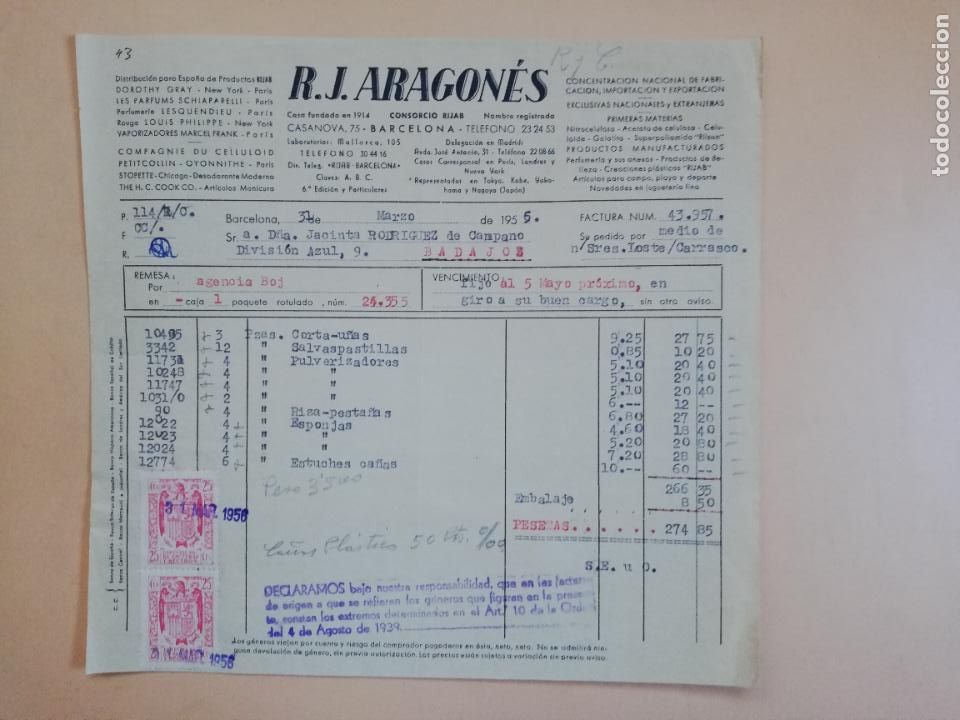 43
R y C.
Distribución para España de Productos RIJAB
DOROTHY GRAY - New York - Paris
LES PARFUMS SCHIAPARELLI - Paris
Parfumerie LESQUENDIEU - Paris
Rouge LOUIS PHILIPPE - New York
VAPORIZADORES MARCEL FRANK - Paris
COMPAGNIE DU CELLULOID
PETITCOLLIN - OYONNITHE - Paris
STOPETTE - Chicago - Desodorante Moderno
THE H. C. COOK CO. - Artículos Manicura
R.J. ARAGONÉS
Casa fundada en 1914 CONSORCIO RIJAB Nombre registrado
CASANOVA, 75 - BARCELONA - TELEFONO 23 24 53
Laboratorios: Mallorca, 105
TELEFONO 30 44 16
Dir. Teleg. «RIJAB-BARCELONA»
Claves: A. B. C.
6.ª Edición y Particulares
Delegación en Madrid:
Avda. José Antonio, 31 - Teléfono 22 08 66
Casas Corresponsal en Paris, Londres y
Nueva York
Representadas en Tokyo, Kobe, Yoko-
hama y Nagoya (Japón)
CONCENTRACION NACIONAL DE FABRI-
CACION, IMPORTACION Y EXPORTACION
EXCLUSIVAS NACIONALES y EXTRANJERAS
PRIMERAS MATERIAS
Nitrocelulosa - Acetato de celulosa - Celu-
loide - Galalita - Superpoliamida "Rilsan"
PRODUCTOS MANUFACTURADOS
Perfumería y sus anexos - Productos de Be-
lleza - Creaciones plásticas "RIJAB"
Artículos para campo, playa y deporte
Novedades en juguetería fina
P. 114/1/0. Barcelona, 31 de Marzo de 1956. FACTURA NUM. 43.957.
F CC/. Sr a. Dña. Jacinta RODRIGUEZ de Campano Su pedido por medio de
R. División Azul, 9. BADAJOZ n/Sres.Loste/Carrasco.
REMESA: VENCIMIENTO
Por agencia Boj fijo al 5 Mayo próximo, en
en - caja 1 paquete rotulado, núm. 24.355 giro a su buen cargo, sin otro aviso.
10495 3 Pzas. Corta-uñas 9.25 27 75
3342 12 " Salvaspastillas 0.85 10 20
11731 4 " Pulverizadores 5.10 20 40
10248 4 " " 5.10 20 40
11747 4 " " 5.10 20 40
1031/0 2 " " 6.-- 12 --
90 4 " Riza-pestañas 6.80 27 20
12022 4 " Esponjas 4.60 18 40
12023 4 " " 5.20 20 80
12024 4 " " 7.20 28 80
12774 6 " Estuches cañas 10.-- 60 --
266 35
Peso 3'500
Embalaje 8 50
PESETAS...... 274 85
Plástico 50
S.E. u O.
25 25
31 MAR. 1956
25
25 25
MAR. 1956
DECLARAMOS bajo nuestra responsabilidad, que en las facturas
de origen a que se refieren los géneros que figuran en la presen
te, constan los extremos determinados en el Art. 10 de la Orden
del 4 de Agosto de 1939.
Los géneros viajan por cuenta y riesgo del comprador pagaderos en ésta, neto, neto. No se admitirá nin-
guna devolución de género, sin previa autorización. Los precios están sujetos a variación sin previo aviso.
todocoleccion